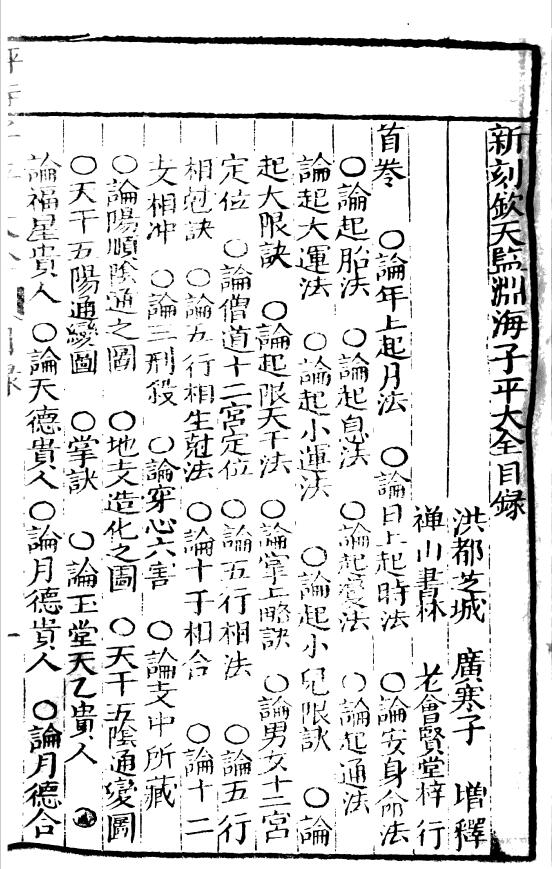 新刻欽天監淵海子平大全目録
洪都芝城 廣寒子 增釋
禅山書林 老會賢堂梓行
首卷 〇論年上起月法 〇論日上起時法 〇論安身命法
〇論起胎法 〇論起息法 〇論起變法 〇論起通法
論起大運法 〇論起小運法 〇論起小兒限訣 〇論
起大限訣 〇論起限天干法 〇論掌上略訣 〇論男女十二宮
定位 〇論僧道十二宮定位 〇論五行相法 〇論五行
相尅訣 〇論五行相生尅法 〇論十干相合 〇論十二
支相冲 〇論三刑殺 〇論穿心六害 〇論支中所藏
〇論陽順陰通之圖 〇地支造化之圖 〇天干五陰通變圖
〇天干五陽通變圖 〇掌訣 〇論玉堂天乙貴人
論福星貴人 〇論天德貴人 〇論月德貴人 〇論月德合